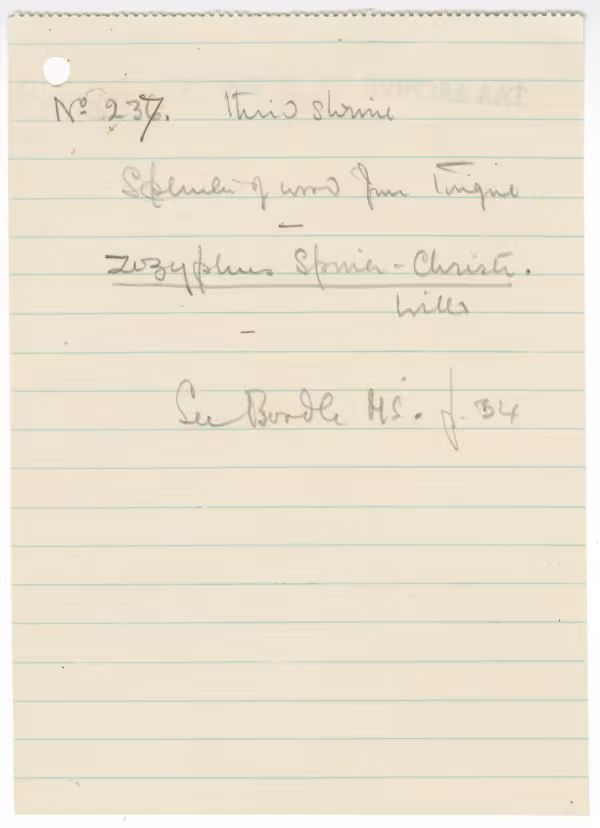 Nº 237. Third shrine
Splinter of wood from Tongue
—
Zizyphus Spina-Christi.
Willd
—
See Boodle MS. p. 34